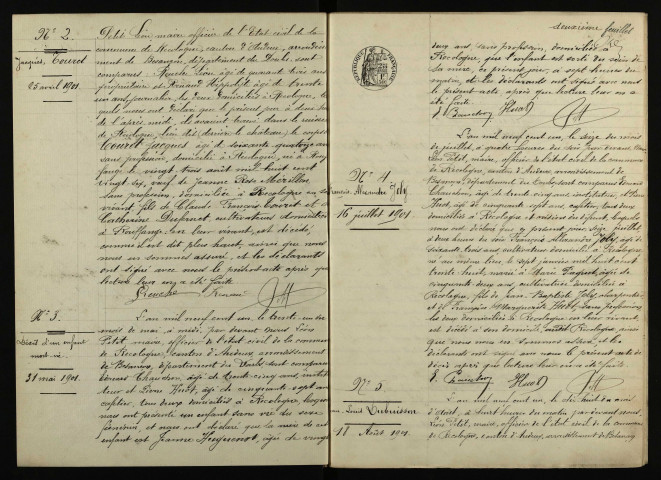 N° 2.
Jacques Couret
25 avril 1901.
Petit Léon maire officier de l'Etat civil de la
commune de Recologne, canton d'Audeux, arrondisse
ment de Besançon, département du Doubs, sont
comparus
propriétaire et Renaud Hippolyte âgé de trente
un ans, tous deux domiciliés à Recologne, les
quels nous ont déclaré que le présent jour à deux heures
de l'après midi
Couret Jacques âgé de soixante quatorze ans
sans profession, domicilié à Recologne, né à
le vingt trois août mil huit cent
vingt six, veuf de Jeanne Rose
sans profession, domiciliée à Recologne en son
vivant, fils de Claude François Couret et de
Catherine Dupret, cultivateurs domiciliés
à en leur vivant, est décédé,
comme il est dit plus haut, ainsi que nous
nous en sommes assuré, et les déclarants
ont signé avec nous le présent acte après que
lecture leur en a été faite
N° 3.
Décès d'un enfant
mort-né.
31 mai 1901.
L'an mil neuf cent un le trente un du
mois de mai, à midi, par devant nous Léon
Petit, maire, officier de l'état civil de la commune
de Recologne, canton d'Audeux, arrondissement
de Besançon, département du Doubs sont compa
rus Chaudron, âgé de trente cinq ans
et Léon Huot, âgé de cinquante sept ans
captier, tous deux domiciliés à Recologne lesquels
nous ont présenté un enfant sans vie du sexe
féminin, et nous ont déclaré que la mère de cet
enfant est Jeanne âgée de vingt
deuxième feuillet
deux ans, sans profession, domiciliée à
Recologne, que l'enfant est sorti du sein de
sa mère, ce présent jour, à sept heures du
matin, et les déclarants ont signé avec nous
le présent acte, après que lecture leur en a
été faite
Huot
RÉPUBLIQUE FRANÇAISE
N° 4.
François Alexandre Joly
16 juillet 1901
L'an mil neuf cent un, le seize du mois
de juillet, à quatre heures du soir, par devant nous
Léon Petit, maire, officier de l'état civil de la commune
de Recologne, canton d'Audeux, arrondissement de
Besançon, département du Doubs, sont comparus
âgé de trente cinq ans, et Léon
Huot, âgé de cinquante sept ans, captier, tous deux
domiciliés à Recologne et voisins du défunt, lesquels
nous ont déclaré que ce présent jour, seize juillet
à deux heures du soir François Alexandre Joly, âgé de
soixante trois ans, cultivateur domicilié à Recologne
né au même lieu le sept janvier mil huit cent
trente huit, marié à Marie âgée de
cinquante deux ans, cultivatrice domiciliée à
Recologne, fils de Jean Baptiste Joly, charpentier
et de Françoise Marguerite Huot, sans profession,
tous deux domiciliés à Recologne en leur vivant
est décédé à son domicile, audit Recologne, ainsi
que nous nous en sommes assuré, et les
déclarants ont signé avec nous le présent acte
après que lecture leur en a été faite.
Huot
N° 5.
Louis Dubuisson
18 Août 1901.
L'an mil neuf cent un, le dix huit du mois
d'août, à huit heures du matin, par devant nous
Léon Petit, maire, officier de l'état civil de la commune
de Recologne, canton d'Audeux, arrondissement de Besançon